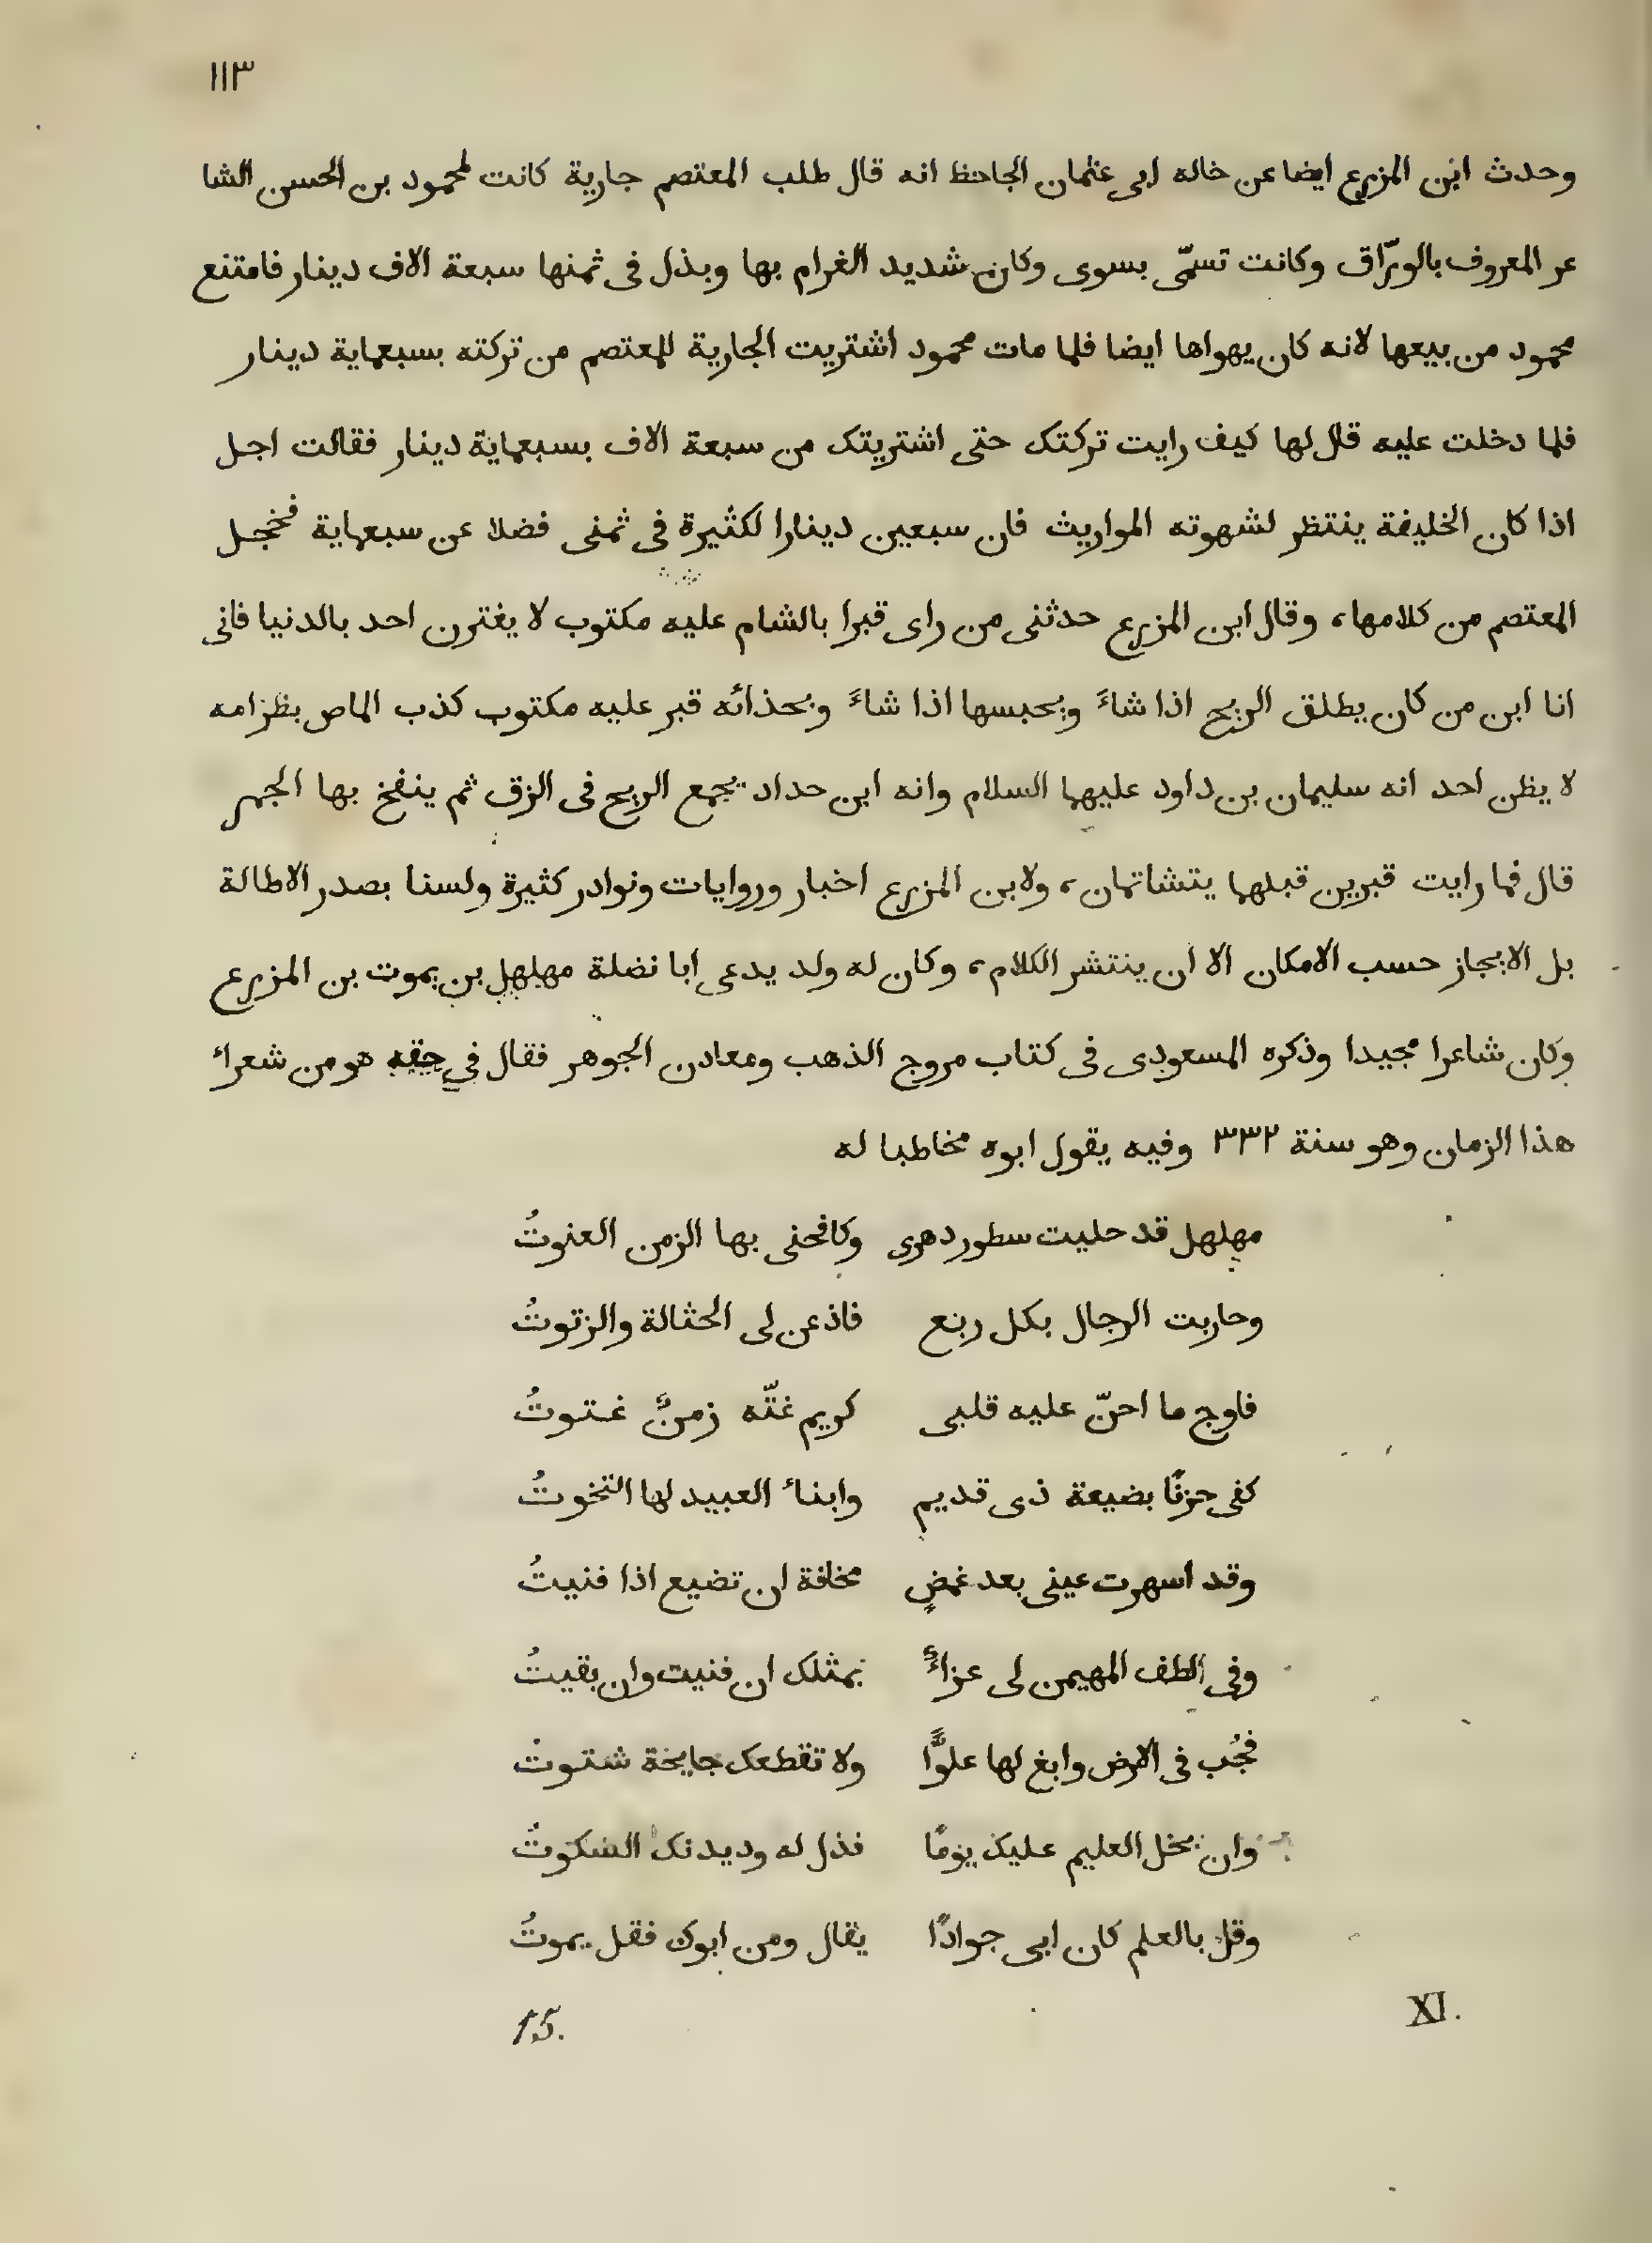 ١١٣
وحدث ابن المزرع ايضا عن خاله ابى عثمان الجاحظ انه قال طلب المعتصم جارية كانت لمحمود بن الحسن الشا
عر المعروف بالورّاق وكانت تسمّى بسوى وكان شديد الغرام بها وبذل فى ثمنها سبعة الاف دينار فامتنع
محمود من بيعها لانه كان يهواها ايضا فلما مات محمود اشتريت الجارية للمعتصم من تركته بسبعماية دينار
فلما دخلت عليه قال لها كيف رايت تركتك حتى اشتريتك من سبعة الاف بسبعماية دينار فقالت اجل
اذا كان الخليفة ينتظر لشهوته المواريث فان سبعين دينارا لكثيرة فى ثمنى فضلا عن سبعماية فخجل
المعتصم من كلامها، وقال ابن المزرع حدثنى من راى قبرا بالشام عليه مكتوب لا يغترن احد بالدنيا فانى
انا ابن من كان يطلق الريح اذا شاءَ ويحبسها اذا شاءَ وبحذائه قبر عليه مكتوب كذب الماص بظر امه
لا يظن احد انه سليمان بن داود عليهما السلام وانه ابن حداد يجمع الريح فى الزق ثم ينفخ بها الجمر
قال فما رايت قبرين قبلهما يتشاتمان، ولابن المزرع اخبار وروايات ونوادر كثيرة ولسنا بصدر الاطالة
بل الايجاز حسب الامكان الا ان ينتشر الكلام، وكان له ولد يدعى ابا نضلة مهلهل بن يموت بن المزرع
وكان شاعرا مجيدا وذكره المسعودى فى كتاب مروج الذهب ومعادن الجوهر فقال في حقه هو من شعراء
هذا الزمان وهو سنة ٣٣٢ وفيه يقول ابوه مخاطبا له
مهلهل قد حليت سطور دهرى وكافحنى بها الزمن العنوتُ
وحاربت الرجال بكل ربع فاذعن لى الحثالة والرتوتُ
فاوجع ما احنّ عليه قلبى كريم غتّه زمنٌ غتوتُ
كفى حزنًا بضيعة ذى قديم وابناء العبيد لها التخوتُ
وقد اسهرت عينى بعد غمضٍ مخافة ان تضيع اذا فنيتُ
وفى الطف المهيمن لى عزاءٌ بمثلك ان فنيت وان بقيتُ
فجُب فى الارض وابغ لها علوًّا ولا تقطعك جايحة شتوتُ
وان بخل العليم عليك يومًا فذل له وديدنك السكوتُ
وقل بالعلم كان ابى جوادًا يقال ومن ابوك فقل يموتُ
XI. 15.